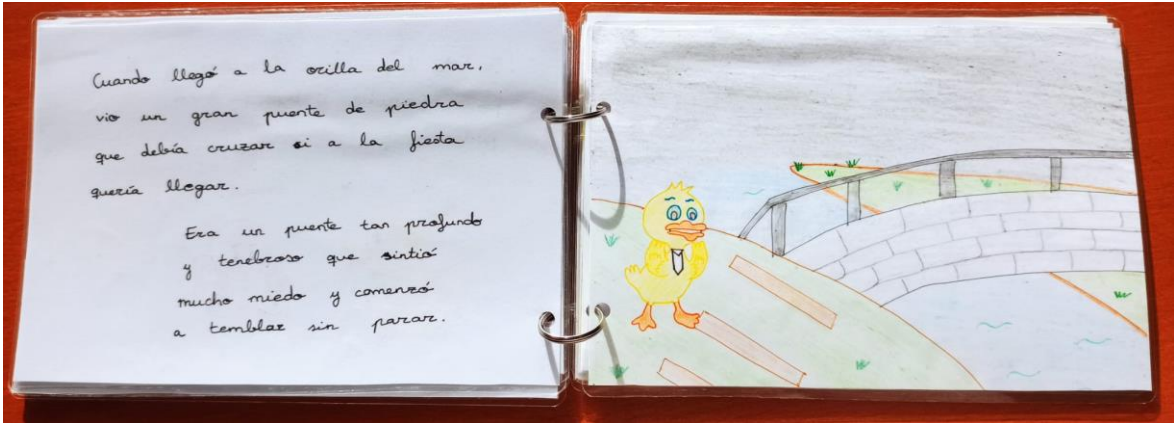 Cuando llegó a la orilla del mar,
vio un gran puente de piedra
que debía cruzar si a la fiesta
quería llegar.
Era un puente tan profundo
y tenebroso que sintió
mucho miedo y comenzó
a temblar sin parar.